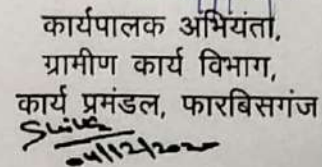 कार्यपालक अभियंता,
ग्रामीण कार्य विभाग,
कार्य प्रमंडल, फारबिसगंज
04/12/2020